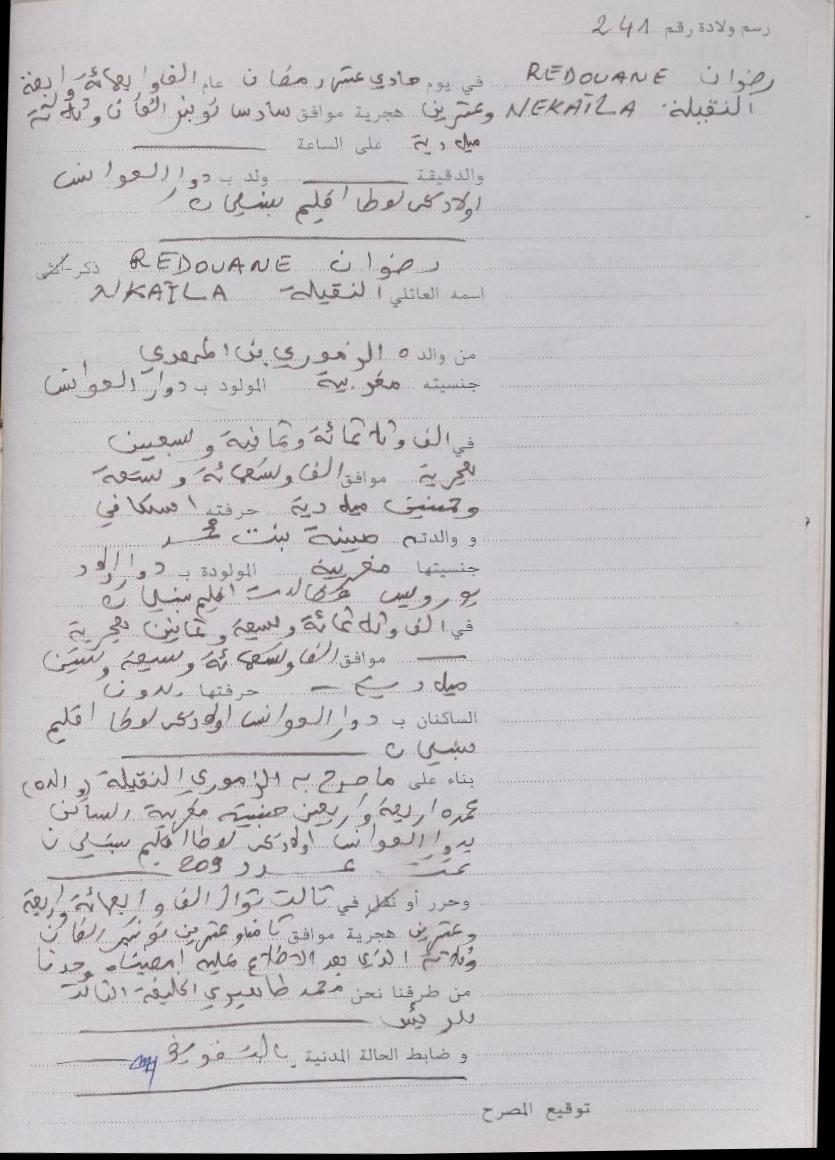 رسم ولادة رقم 241
رضوان REDOUANE
النقيلة NEKAILA
في يوم حادي عشر رمضان عام الف واربعمائة واربعة
وعشرين هجرية موافق سادس نونبر الفان وثلاثة
ميلادية على الساعة
والدقيقة ولد ب دوار العوانس
اولاد يحيى لوطا اقليم بنسليمان
رضوان REDOUANE ذكر-أنثى
اسمه العائلي النقيلة NKAILA
من والده الزموري بن المهدي
جنسيته مغربية المولود ب دوار العوانس
في الف وثلاثمائة وثمانية وسبعين
هجرية موافق الف وتسعمائة وتسعة
وخمسين ميلادية حرفته اسكافي
و والدته مينة بنت محمد
جنسيتها مغربية المولودة ب دوار اولاد
بورويس اقليم بنسليمان
في الف وثلاثمائة وسبعة وثمانين هجرية
موافق الف وتسعمائة وسبعة وستين
ميلادية حرفتها بدون
الساكنان ب دوار العوانس اولاد يحيى لوطا اقليم
بنسليمان
بناء على ما صرح به الزموري النقيلة (والده)
عمره اربعة واربعين جنسيته مغربية الساكن
بدوار العوانس اولاد يحيى لوطا اقليم بنسليمان
تحت عدد 209
وحرر أو نقل في ثالث شوال الف واربعمائة واربعة
وعشرين هجرية موافق ثامن وعشرين نونبر الفان
وثلاثة الذي بعد الاطلاع عليه امضيناه وحدنا
من طرفنا نحن محمد الخليفة الثالث
للرئيس
و ضابط الحالة المدنية بالتفويض
توقيع المصرح